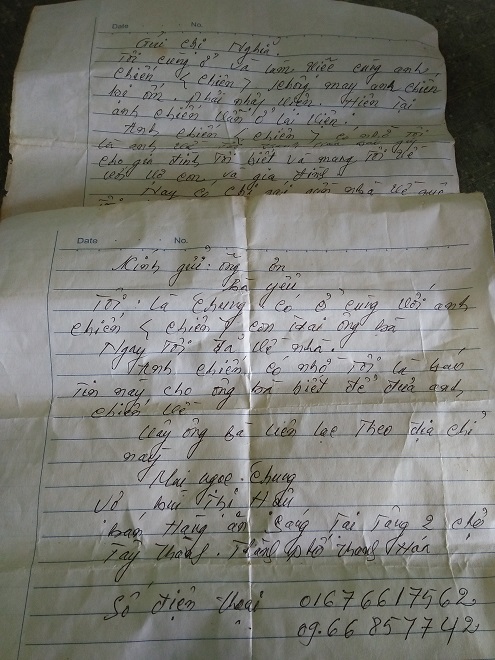 Date No.
Gửi chị Nghĩa.
Tôi cùng ở và làm việc cùng anh
chiến < chiên > không may anh chiến
bị ốm. phải nhập viện. Hiện tại
anh chiến vẫn ở lại viện.
Anh chiến < chiên > có nhờ tôi
là anh
cho gia đình tôi biết và mang tôi về
với vợ con và gia đình
Nay có chị gái
Date No.
Kính gửi: ông ơn
bà yêu
Tôi là Chung có ở cùng với anh
chiến < chiên > con trai ông bà
Ngay tôi đã về nhà.
Anh chiến có nhờ tôi là báo
tin này cho ông bà biết để đưa anh
chiến về
Vậy ông bà liên lạc theo địa chỉ
này
Mai ngọc. Chung
Vợ bùi Thị Hậu
bán Hàng ăn sáng Tại Tầng 2 chợ
Tây Thành. Thành phố Thanh Hóa
Số điện thoại 01676617562
09.66 857742